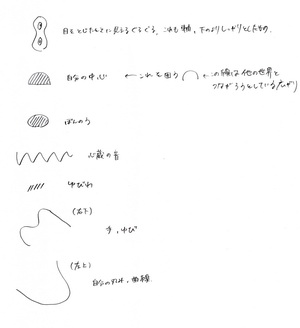 目をとじたときに見えるぐるぐる。これも軸、下のよりしっかりとしたもの。
自分の中心 ← これを囲う ← この線は他の世界と
つながろうとしている広がり
ぼんのう
心臓の音
ゆびわ
(右下)
手、ゆび
(左上)
自分の丸み、曲線